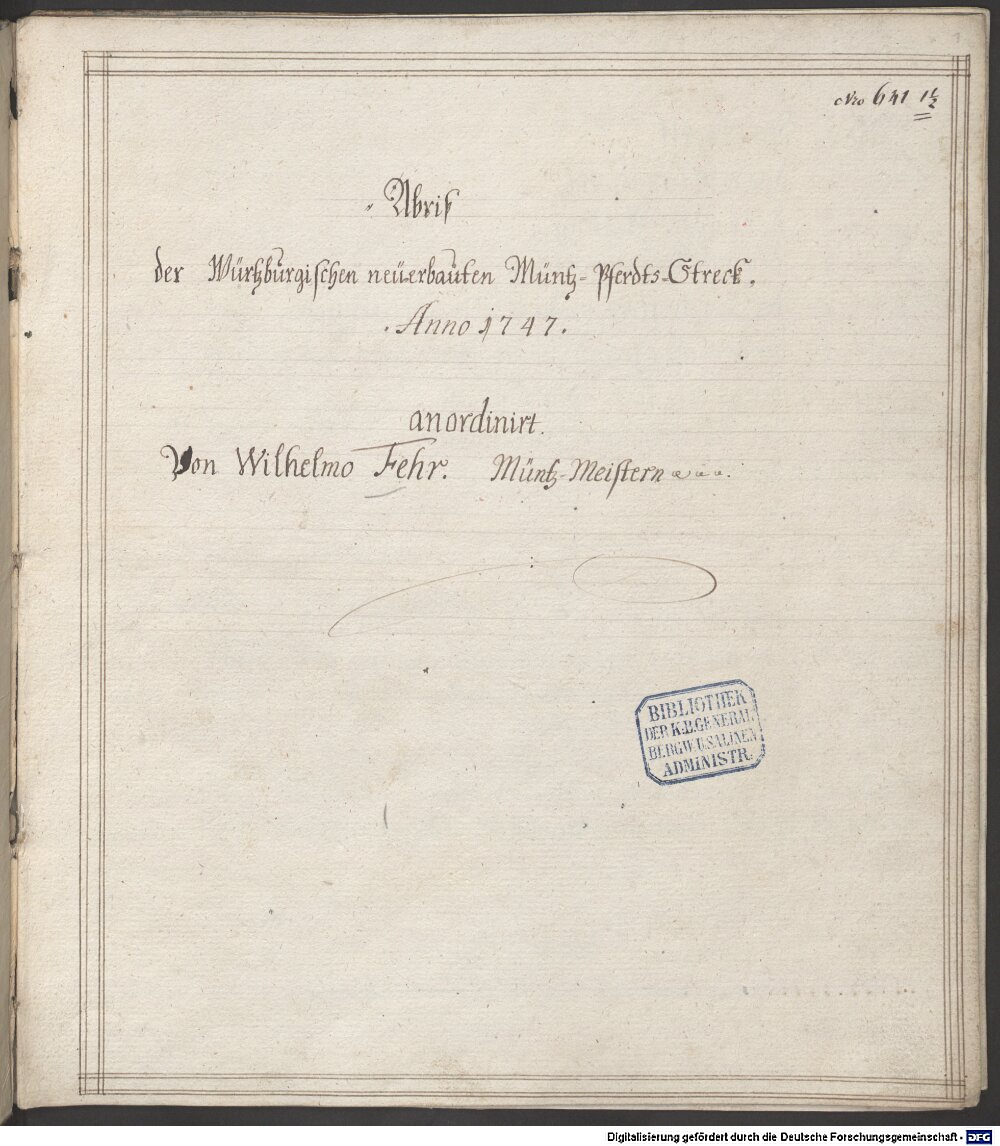 Nro 641 1/2
Abriß
der Würtzburgischen neüerbauten Müntz-Pferdts-Streck.
Anno 1747.
anordinirt.
Von Wilhelmo Fehr. Müntz-Meistern
BIBLIOTHEK
DER K.B.GENERAL
BERGW.U.SALINEN
ADMINISTR.
Digitalisierung gefördert durch die Deutsche Forschungsgemeinschaft - DFG